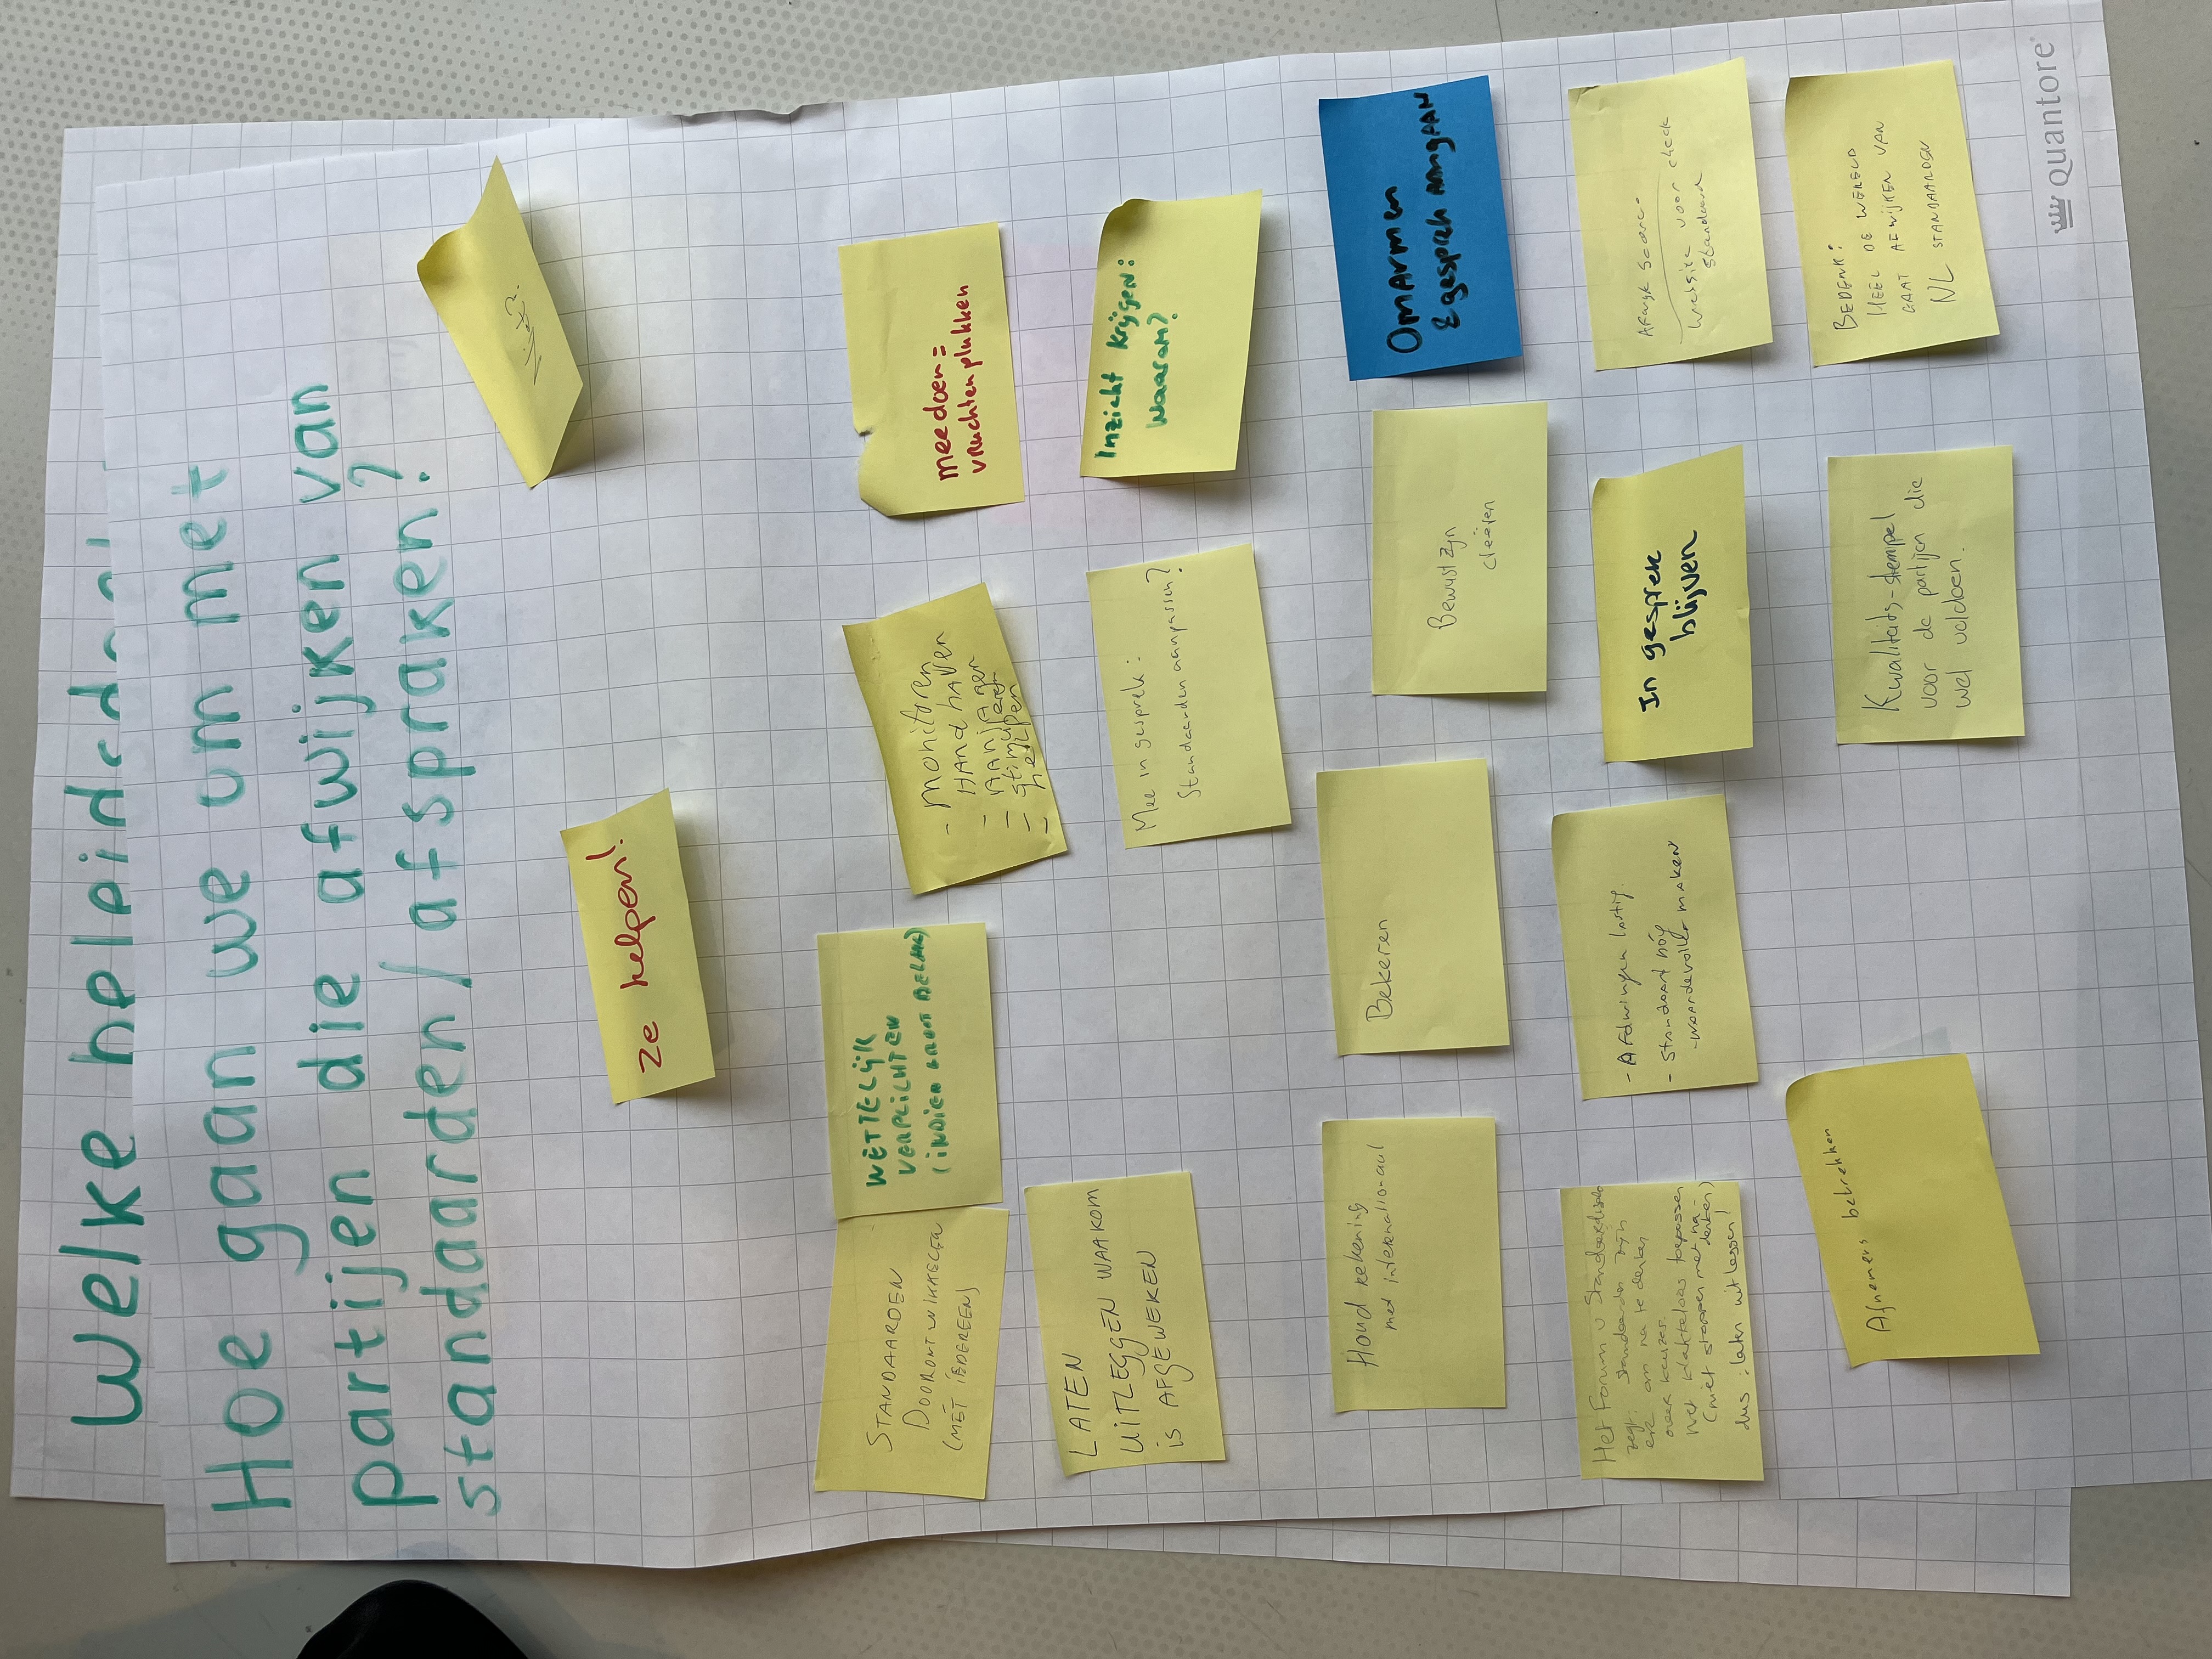 Welke
Hoe gaan we om met
partijen die afwijken van
standaarden/afspraken?
Niet?
Ze helpen!
STANDAARDEN
DOORONTWIKKELEN
(MÉT IEDEREEN)
WETTELIJK
VERPLICHTEN
(INDIEN GROOT BELANG)
- Monitoren
HANdHAVEN
- AANJAGEN
- Stimuleren
- helpen
meedoen =
vruchten plukken
LATEN
UITLEGGEN WAAROM
is AFGEWEKEN
Mee in gesprek:
Standaarden aanpassen?
Inzicht krijgen:
Waarom?
Houd rekening
met internationaal
Bekeren
Bewustzijn
creëren
Omarmen
& gesprek AANGAAN
Het Forum v Standaardisatie
zegt: standaarden zijn
om na te denken
over keuzes.
Niet klakkeloos toepassen
(niet stoppen met na-
denken)
dus: laten uitleggen!
- Afdwingen lastig.
- Standaard nóg
- waardevoller maken
In gesprek
blijven
Afwijk score -
website voor check
standaard
Afnemers betrekken
Kwaliteits-stempel
voor de partijen die
wel voldoen.
BEDENK:
HEEL DE WERELD
GAAT AFWIJKEN VAN
NL STANDAARDEN
quantore